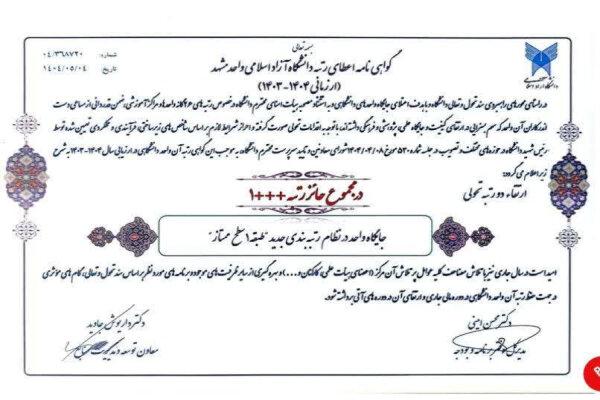 بسمه تعالی
شماره: ۰۴/۳۶۸۷۲۰
تاریخ: ۱۴۰۴/۰۵/۰۴
گواهی نامه اعطای رتبه دانشگاه آزاد اسلامی واحد مشهد
(ارزیابی ۱۴۰۴-۱۴۰۳)
در راستای محورهای راهبردی سند تحول و تعالی دانشگاه و با هدف اعتلای جایگاه واحدهای دانشگاهی و به استناد مصوبه هیات امنای محترم دانشگاه در خصوص رتبه های واحدها و مراکز آموزشی، ضمن قدردانی از مساعی دست
اندرکاران آن واحد که سهم بسزایی در ارتقای کیفیت و جایگاه علمی، پژوهشی و فرهنگی داشته اند، با توجه به اقدامات تحولی صورت گرفته و احراز شرایط لازم بر اساس شاخص های زیرساختی، فرآیندی و عملکردی تعیین شده توسط
رئیس دانشگاه در حوزه های مختلف و تصویب در جلسه شماره ۵۲۰ مورخ ۱۴۰۴/۰۴/۰۸ شورای معاونین و تایید سرپرست محترم دانشگاه، به موجب این گواهی رتبه آن واحد دانشگاهی در ارزیابی سال ۱۴۰۴-۱۴۰۳ به شرح
زیر اعلام می گردد:
ارتقاء دو رتبه تحولی
در مجموع حائز رتبه +++۱
جایگاه واحد در نظام رتبه بندی جدید "طبقه ۱ سطح ممتاز"
امید است در سال جاری نیز با تلاش مضاعف کلیه عوامل پر تلاش آن مرکز (اعضای هیات علمی، کارکنان و...) و بهره گیری از سایر ظرفیت های موجود و برنامه های مورد نظر بر اساس سند تحول و تعالی، گام های موثری
در جهت حفظ رتبه آن واحد دانشگاهی در دوره مالی جاری و ارتقای آن در دوره های آتی برداشته شود.
دکتر محسن امینی
مدیرکل برنامه و بودجه
دکتر داریوش جاوید
معاون توسعه مدیریت و منابع